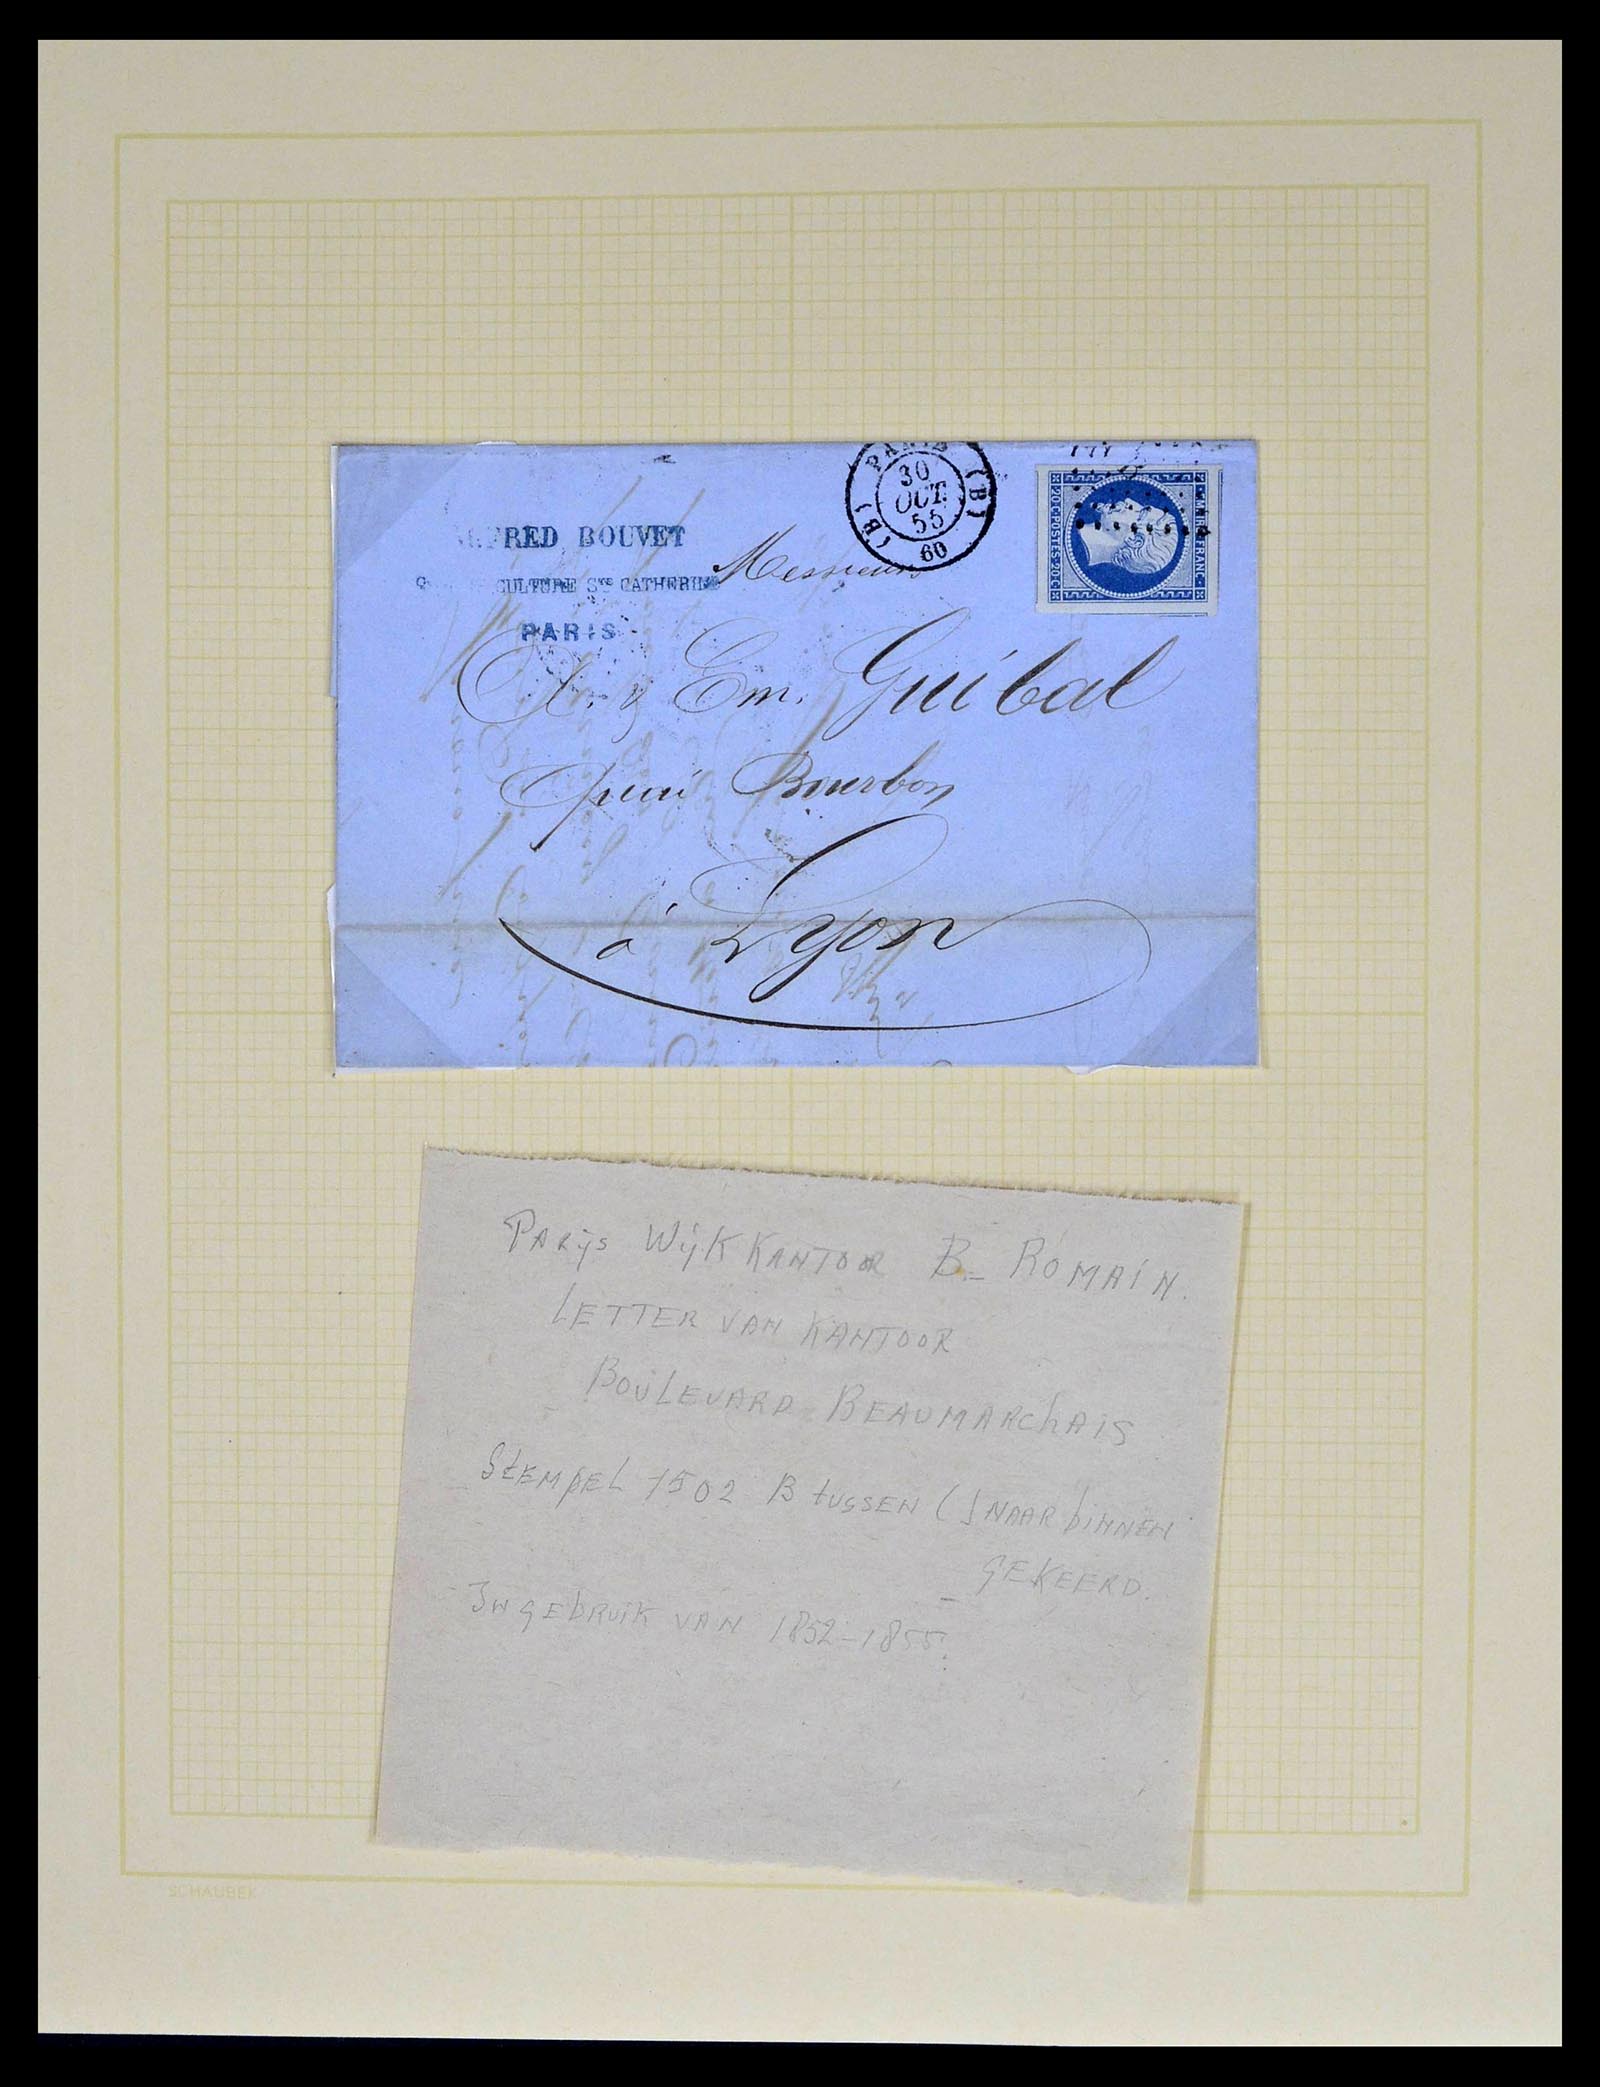 PARIS
(B) (B)
30
OCT.
55
60
EMPIRE FRANC.
20·C·POSTES·20·C
BOUVET
CULTURE Ste CATHERINE
PARIS
Messieurs
A. & Em. Guibal
quai Bourbon
à Lyon
PARijs WijKKANTOOR B- ROMAIN.
LETTER VAN KANTOOR
BOULEVARD BEAUMARChAIS
StEMpEL 1502 B tUSSEN ( ) NAAR biNNEN
GEKEERD.
IN gEbRUiK VAN 1852-1855.
SCHAUBEK